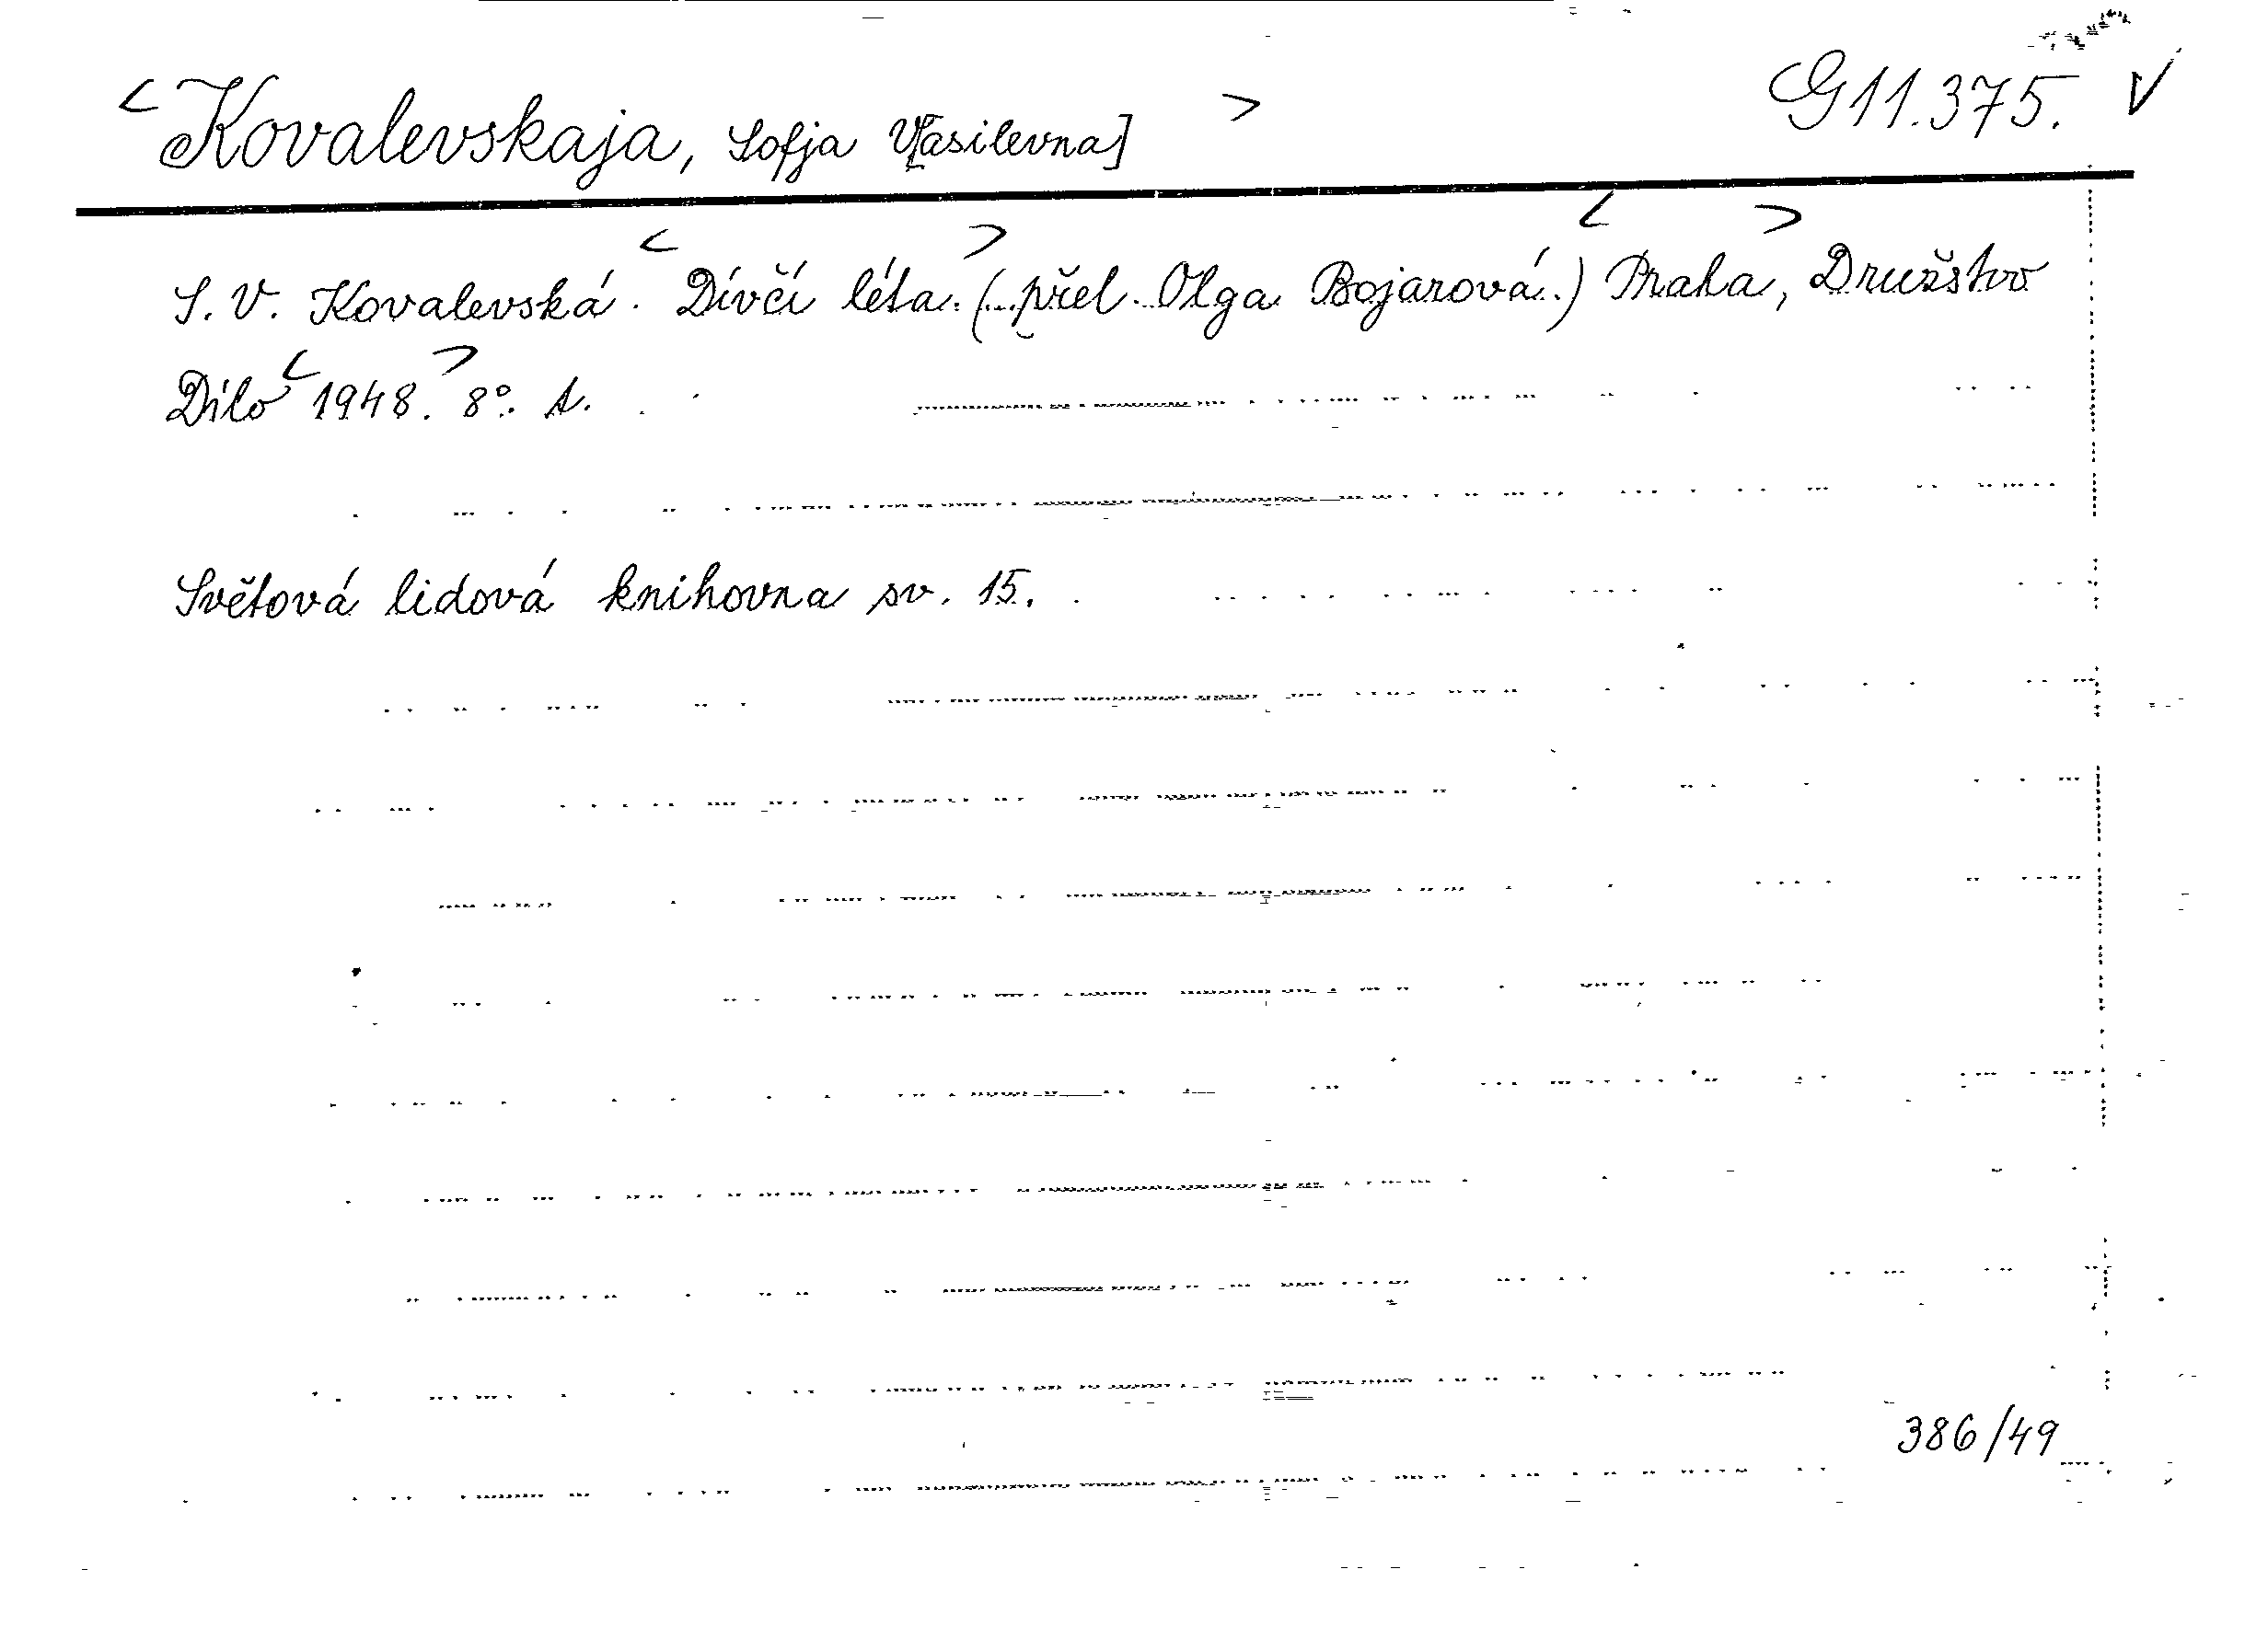 <Kovalevskaja, Sofja V[asilevna]> G11.375. √
S. V. Kovalevská. <Dívčí léta.> (...přel. Olga Bojarová.) <Praha,> Družstvo
Dílo <1948.> 8°. A.
Světová lidová knihovna sv. 15.
386/49